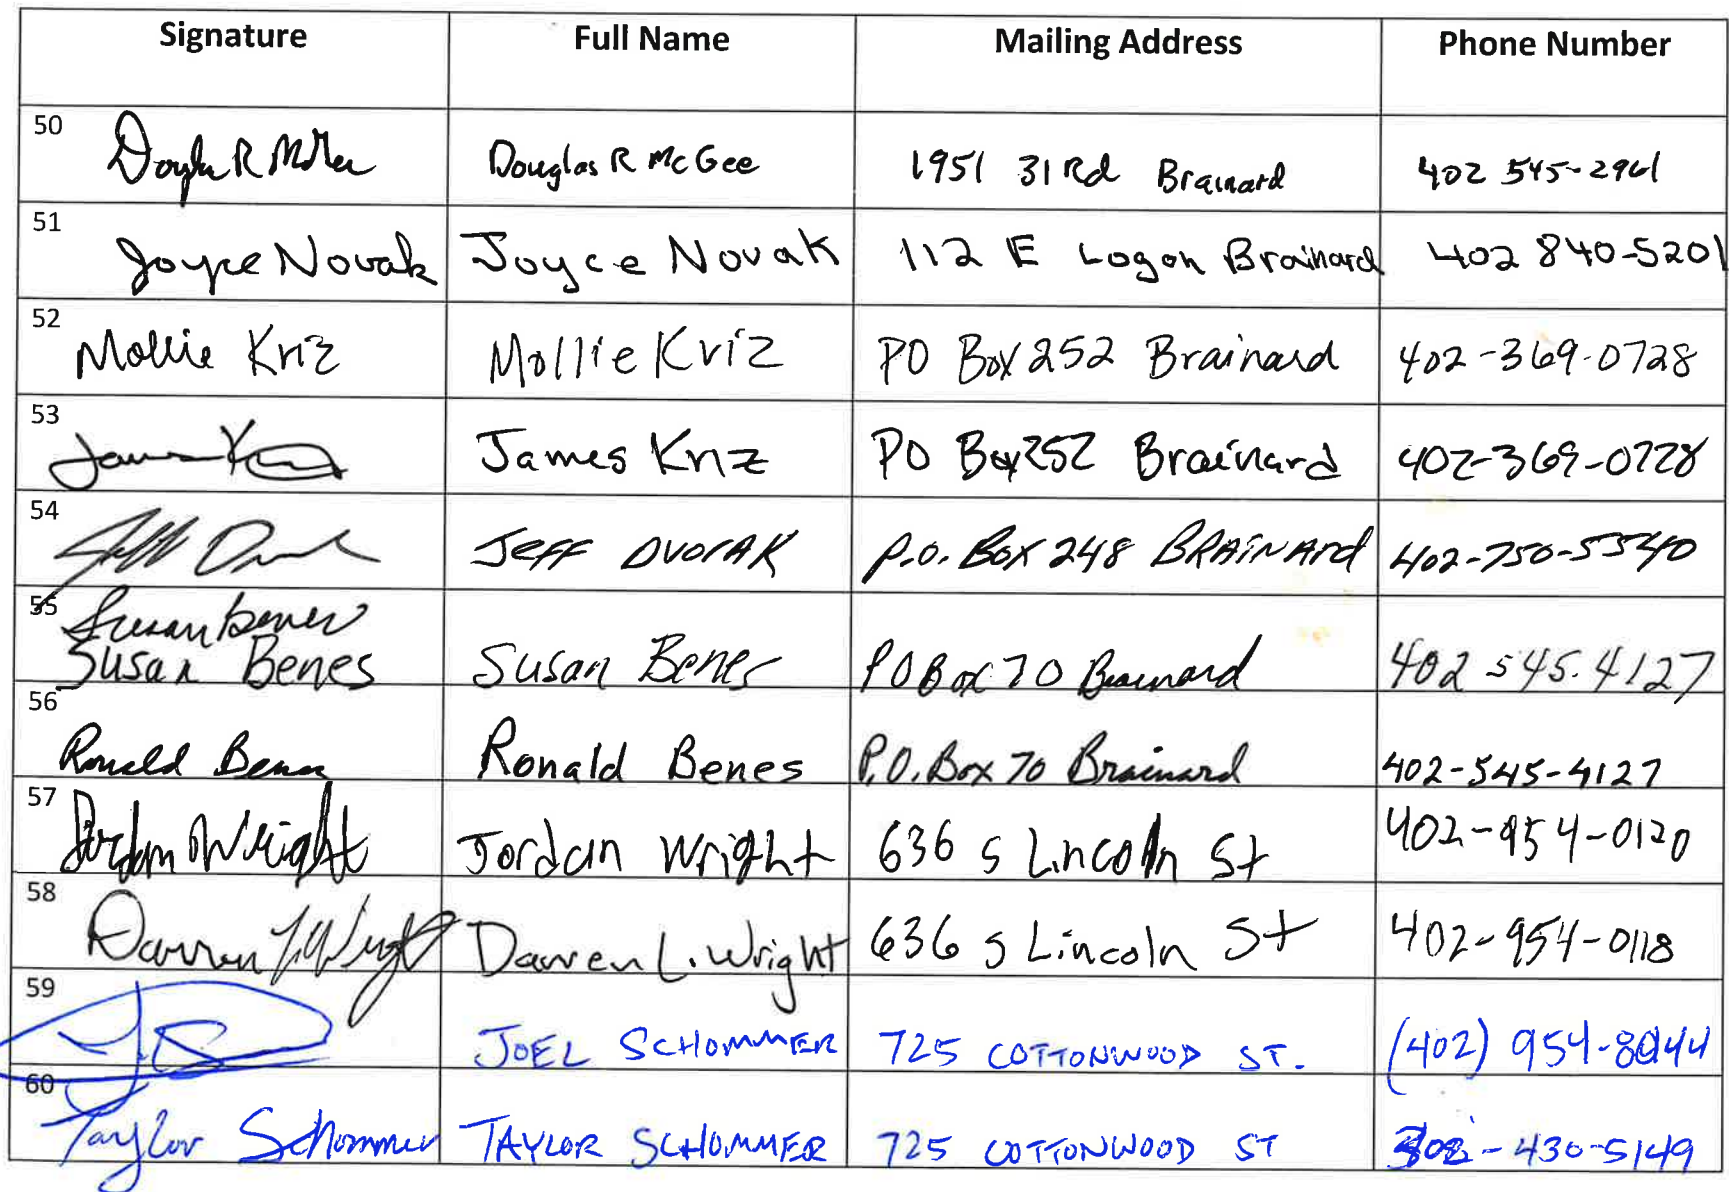 Signature Full Name Mailing Address Phone Number
50 Douglas R McGee 1951 31 Rd Brainard 402 545-2961
51 Joyce Novak Joyce Novak 112 E Logan Brainard 402 840-5201
52 Mollie Kriz Mollie Kriz PO Box 252 Brainard 402-369-0728
53 James Kriz James Kriz PO Box 252 Brainard 402-369-0728
54 JEFF DVORAK P.O. BOX 248 BRAINARD 402-750-5540
55 Susan Benes
Susan Benes Susan Benes PO Box 70 Brainard 402 545.4127
56 Ronald Benes Ronald Benes P.O. Box 70 Brainard 402-545-4127
57 Jordan Wright Jordan Wright 636 S Lincoln St 402-954-0120
58 Darren L Wright Darren L. Wright 636 S Lincoln St 402-954-0118
59 JOEL SCHOMMER 725 COTTONWOOD ST. (402)
60 Taylor Schommer TAYLOR SCHOMMER 725 COTTONWOOD ST 430-5149